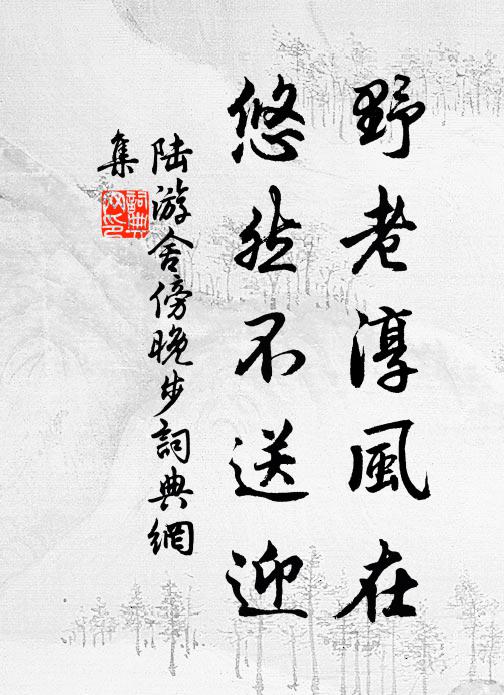 野老淳風在
悠然不送迎
陆游舍傍晚步詞典網
集
詞典
网印